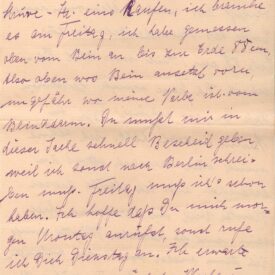 eine kaufen, ich brauche
es am Freitag, ich habe gemessen
oben vom Bein an bis zur Erde 88 cm,
Also oben wo's Bein ansetzt vorn,
ungefähr wo meine Narbe ist vom
Blinddarm. Du mußt mir in
dieser Sache schnell Bescheid geben,
weil ich sonst nach Berlin schrei-
ben muß. Freitag muß ich's schon
haben. Ich hoffe daß Du mich mor-
gen Montag anrufst, sonst rufe
ich Dich Dienstag an. Ich erwarte